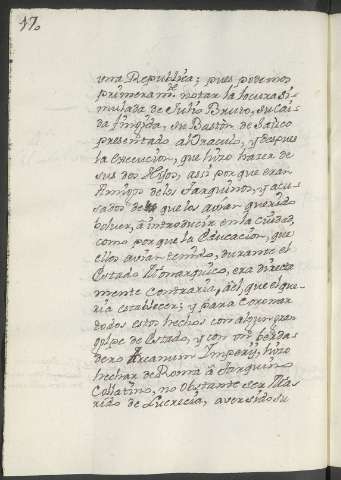 17.
una Republica; pues podemos
primeramte. notar la locura si-
mulada de Julio Bruto, su Cai-
da fingida, su Baston de Sauco
presentado al Oraculo, y despues
la execucion, que hizo hazer de
sus dos Hijos, assi por que eran
Amigos de los Tarquinos, y acu-
sados de que los avian querido
bolver, â introducir en la Ciudad,
como por que la Educacion, que
ellos avian tenido, durante el
Estado Monarquico, era directa
mente Contraria, âel, que el que-
ria establecer; y para Coronar
todos estos hechos con algun gran
golpe de Estado, y con un berda-
dero Arcanum Imperij, hizo
hechar de Roma â Tarquino
Collatino, no obstante ser Ma-
rido de Lucrecia, aver sido su